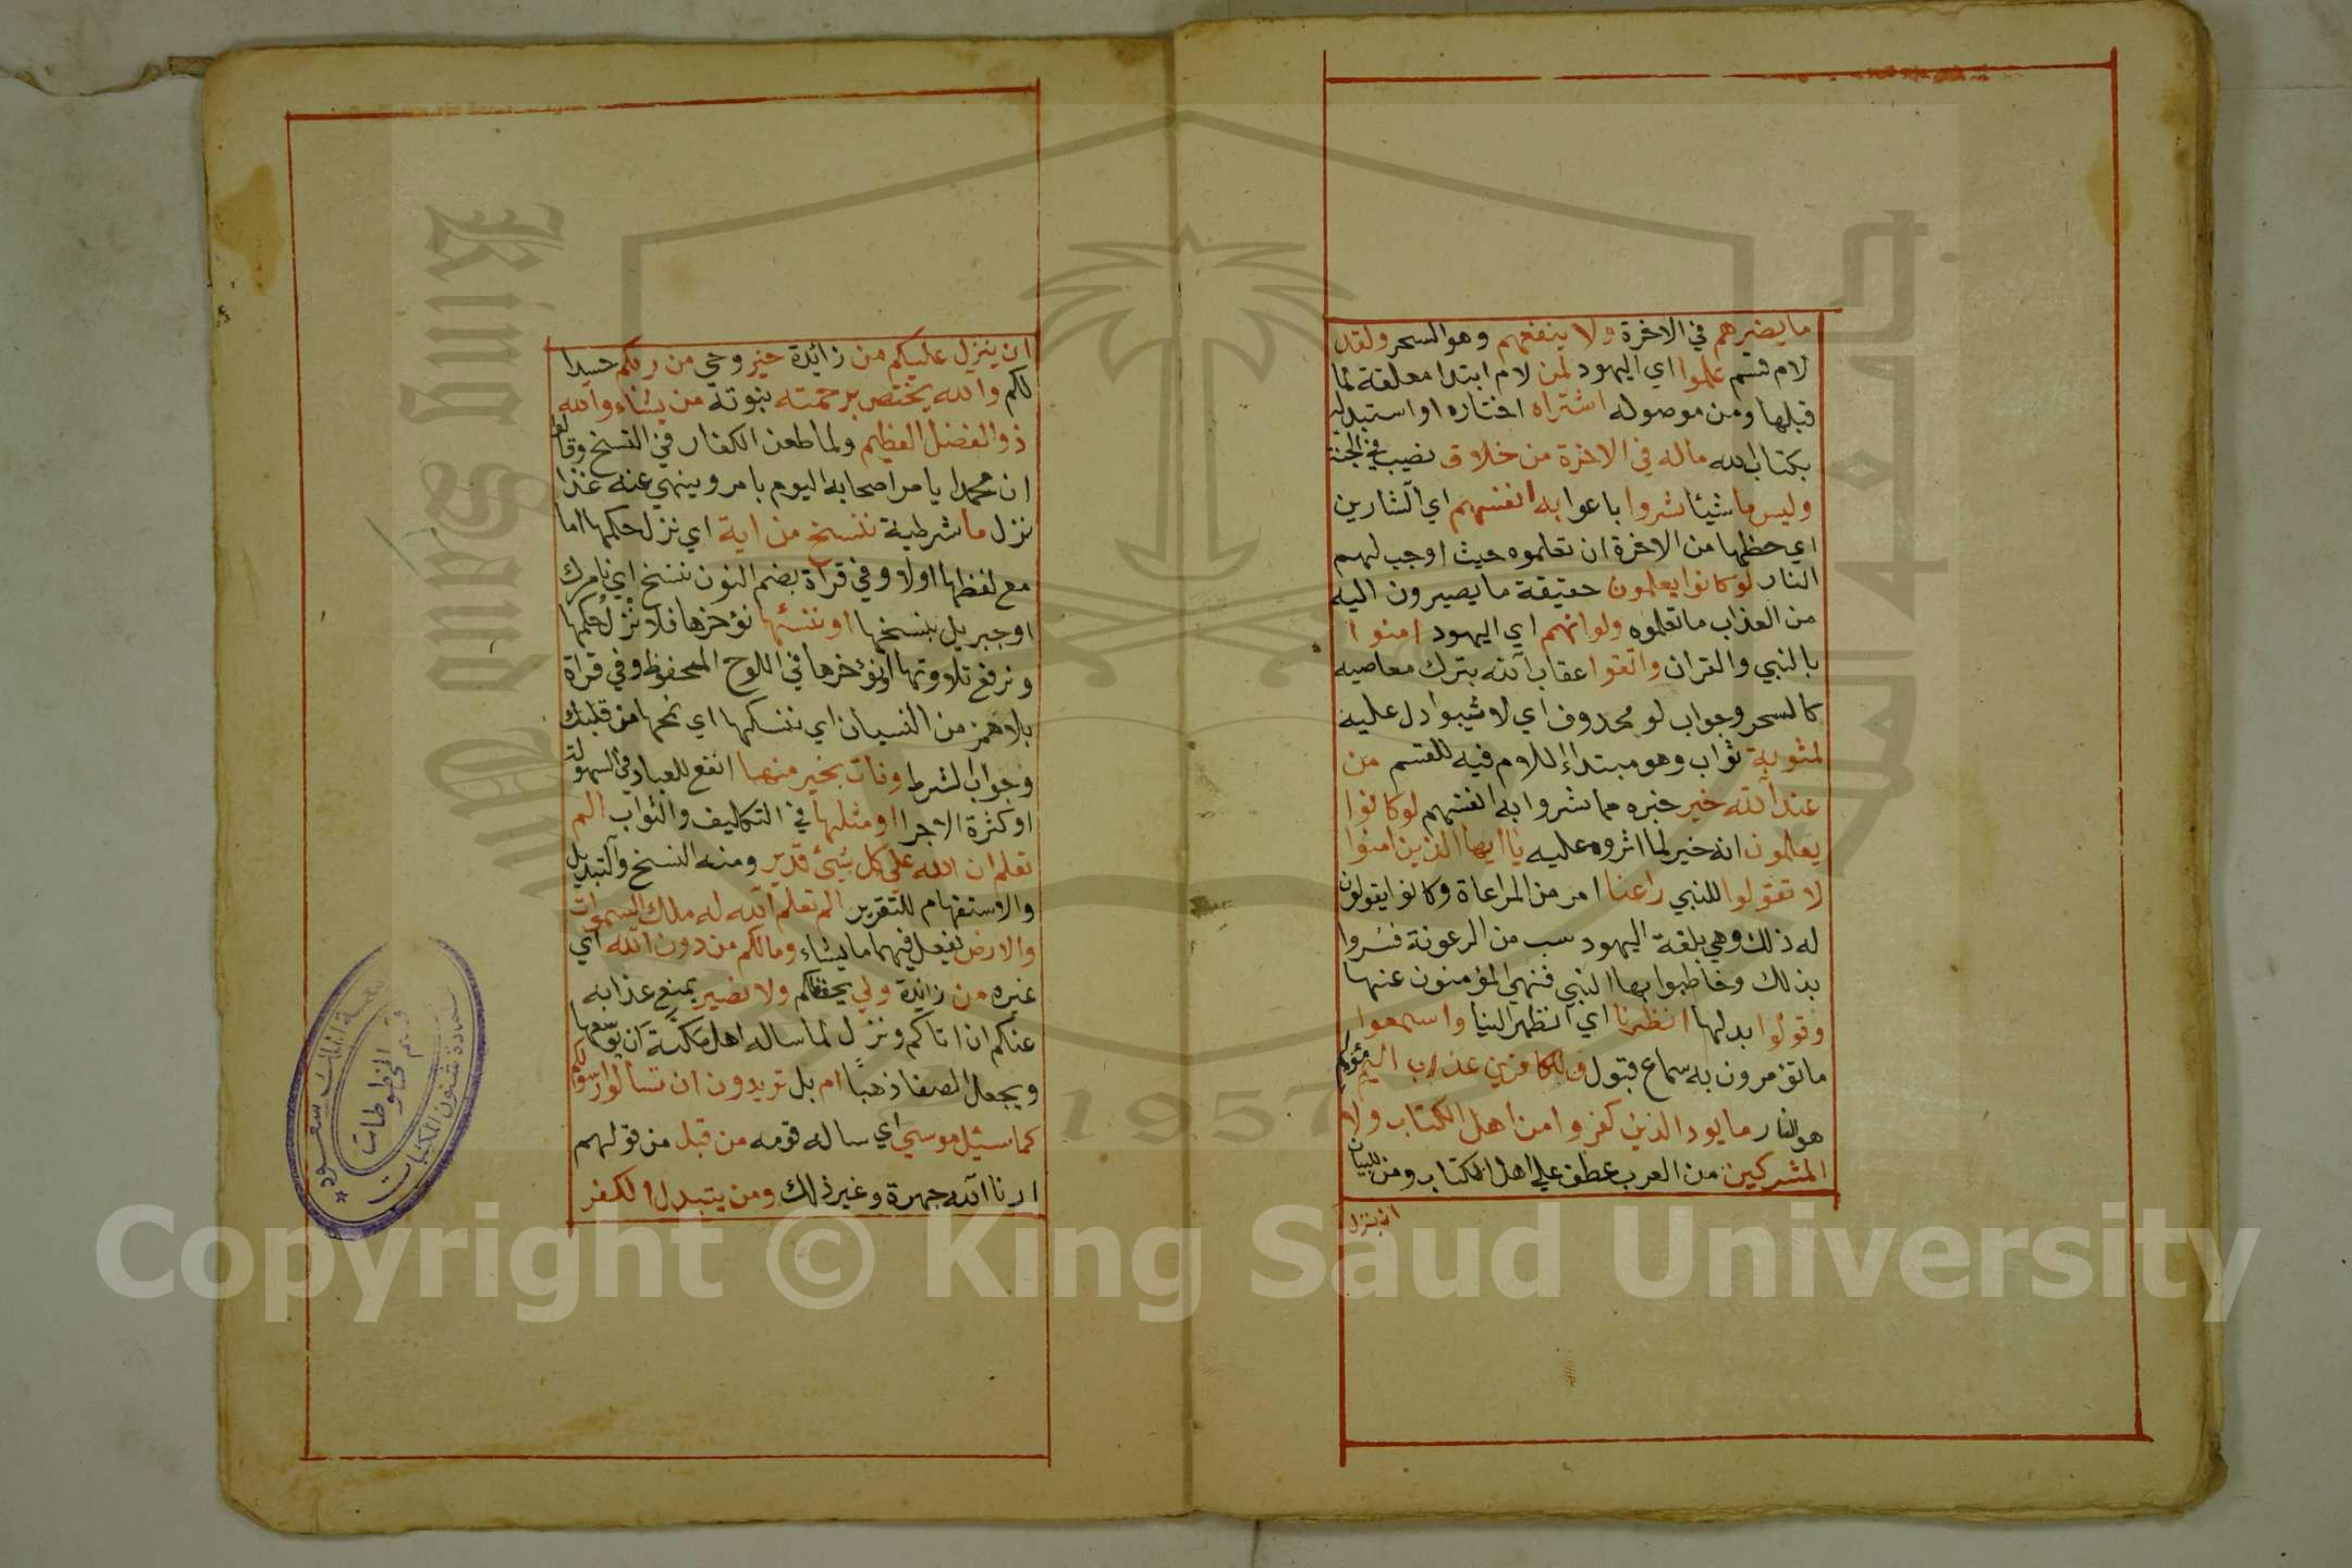 ما يضرهم في الاخرة ولا ينفعهم وهو السحر ولقد
لام قسم علموا اي اليهود لمن لام ابتدا معلقة لما
قبلها ومن موصوله اشتراه اختاره او استبدله
بكتاب الله ماله في الاخرة من خلاق نصيب في الجنة
وليس ما شيئا شروا باعوا به انفسهم اي الشارين
اي حظها من الاخرة ان تعلموه حيث اوجب لهم
النار لو كانوا يعلمون حقيقة ما يصيرون اليه
من العذاب ما تعلموه ولو انهم اي اليهود امنوا
بالنبي والقران واتقوا عقاب الله بترك معاصيه
كالسحر وجواب لو محدوف اي لاثيبوا دل عليه
لمثوبة ثواب وهو مبتداء اللام فيه للقسم من
عند الله خير خبره مما شروا به انفسهم لو كانوا
يعلمون انه خير لما اثروه عليه يا ايها الذين امنوا
لا تقولوا للنبي راعنا امر من المراعاة وكانوا يقولون
له ذلك وهي بلغة اليهود سب من الرعونة فسروا
بذلك وخاطبوا بها النبي فنهي المؤمنون عنها
وقولوا بدلها انظرنا اي انظر الينا واسمعوا
ما تؤمرون به سماع قبول وللكافرين عذاب اليم مؤلم
هو النار ما يود الذين كفروا من اهل الكتاب ولا
المشركين من العرب عطف على اهل الكتاب ومن للبيان
ان ينزل
ان ينزل عليكم من زائدة خير وحي من ربكم حسدا
لكم والله يختص برحمته بنبوته من يشاء والله
ذو الفضل العظيم ولما طعن الكفار في النسخ وقالوا
ان محمدا يامر اصحابه اليوم بامر وينهي عنه غذا
نزل ما شرطية ننسخ من اية اي نزل حكمها اما
مع لفظها اولا وفي قراة بضم النون ننسخ اي نامرك
او جبريل بنسخها او ننسئها نؤخرها فلا نزل حكمها
ونرفع تلاوتها او نؤخرها في اللوح المحفوظ وفي قراة
بلا همز من النسيان اي ننسكها اي نمحها من قلبك
وجواب الشرط ونات بخير منها انفع للعباد في السهولة
او كثرة الاجر او مثلها في التكليف والثواب الم
تعلم ان الله على كل شيئ قدير ومنه النسخ والتبديل
والاستفهام للتقرير الم تعلم الله له ملك السموات
والارض يفعل فيهما ما يشاء ومالكم من دون الله اي
غيره من زائدة ولي يحفظكم ولا نصير يمنع عذابه
عنكم ان اتاكم ونزل لما ساله اهل مكة ان يوسعها
ويجعل الصفا ذهبا ام بل تريدون ان تسالوا رسولكم
كما سئيل موسي اي ساله قومه من قبل من قولهم
ارنا الله جهرة وغير ذلك ومن يتبدل الكفر
جامعة الملك سعود
عمادة شئون المكتبات
قسم المخطوطات
King Saud University
1957
Copyright © King Saud University